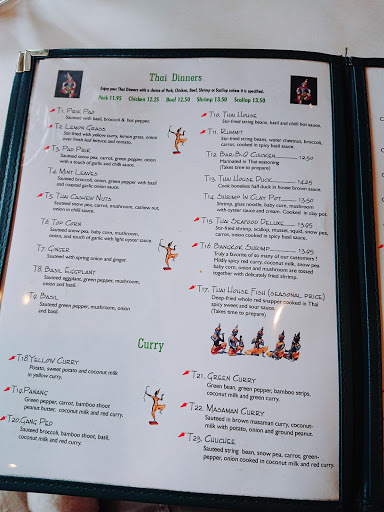 Thai Dinners
Enjoy your Thai Dinners with a choice of Pork, Chicken, Beef, Shrimp or Scallop unless it is specified.
Pork 11.95 Chicken 12.25 Beef 12.50 Shrimp 13.50 Scallop 13.50
T1. Prik Pao
Sauteed with basil, broccoli & hot pepper.
T2. Lemon Grass
Stir-fried with yellow curry, lemon grass, onion
over fresh leaf lettuce and tomato.
T3. Pad Prik
Sauteed snow pea, carrot, green pepper, onion
with a touch of chili and garlic.
T4. Mint Leaves
Sauteed broccoli, onion, green pepper with basil
and roasted garlic onion sauce.
T5. Thai Cashew Nuts
Sauteed snow pea, carrot, mushroom, cashew nut,
onion in chilli sauce.
T6. Top Corn
Sauteed snow pea, baby corn, mushroom,
onion, and touch of garlic with light oyster sauce.
T7. Ginger
Sauteed with spring onion and ginger.
T8. Basil Eggplant
Sauteed eggplant, green pepper, mushroom,
onion and basil.
T9. Basil
Sauteed green pepper, mushroom, onion
and basil.
T10. Thai House
Stir-fried string beans, basil and chilli hot sauce.
T11. Rummit
Stir-fried string beans, water chestnut, broccoli,
carrot, cooked in spicy basil sauce.
T12. Bar-B-Q Chicken 12.50
Marinated in Thai seasoning
(Takes time to prepare)
T13. Thai House Duck
Cook boneless half duck in house brown sauce.
T14. Shrimp In Clay Pot 13.50
Shrimp, glass noodle, baby corn, mushroom
with oyster sauce and cream. Cooked in clay pot.
T15. Thai Seafood Deluxe 13.95
Stir-fried shrimp, scallop, mussel, squid, snow pea,
onion cooked in spicy basil sauce.
T16. Bangkok Shrimp 13.95
Truly a favorite of so many of our customers !
Mildly spicy red curry, coconut milk, snow pea
baby corn, onion and mushroom are tossed
together with delicately fried shrimp.
T17. Thai House Fish (seasonal price)
Deep-fried whole red snapper cooked in Thai
spicy sweet and sour sauce.
(Takes time to prepare)
Curry
T18 Yellow Curry
Potato, sweet potato and coconut milk
in yellow curry.
T19. Panang
Green pepper, carrot, bamboo shoot
peanut butter, coconut milk and red curry.
T20. Gang Ped
Sauteed broccoli, bamboo shoot, basil,
coconut milk and red curry.
T21. Green Curry
Green bean, green pepper, bamboo strips,
coconut milk and green curry.
T22. Masaman Curry
Sauteed in brown masaman curry, coconut-
milk with potato, onion and ground peanut.
T23. Chuchee
Sauteed string bean, snow pea, carrot, green-
pepper, onion cooked in coconut milk and red curry.